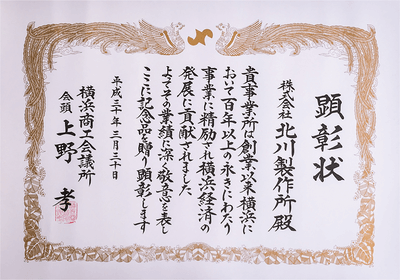 顕彰状
株式会社 北川製作所 殿
貴事業所は創業以来横浜に
おいて百年以上の永きにわたり
事業に精励され横浜経済の
発展に貢献されました
よってその業績に深く敬意を表し
ここに記念品を贈り顕彰します
平成三十年三月三十日
横浜商工会議所
会頭 上野 孝